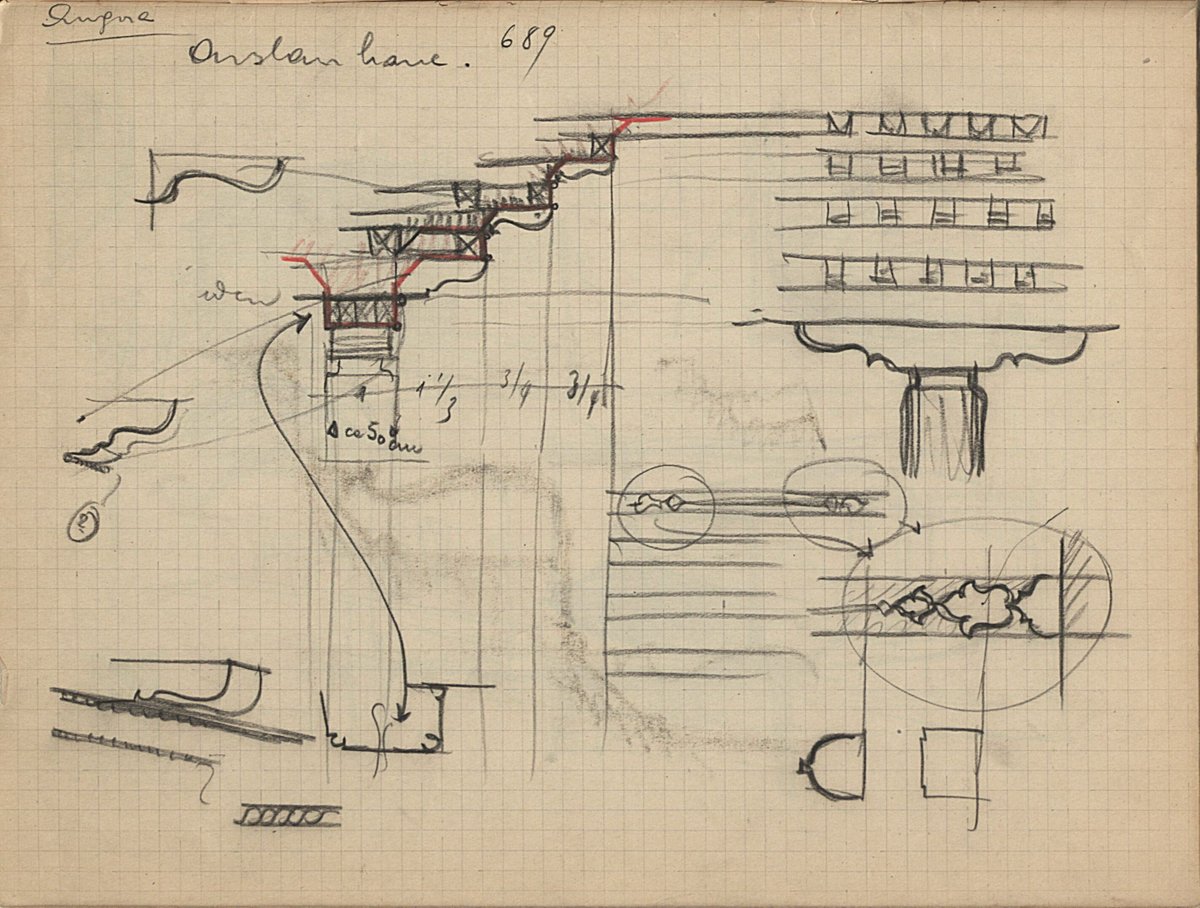 Angora
Arslan hane. 689
idem
1 1 1/3 3/4 3/4
ca 50 cm